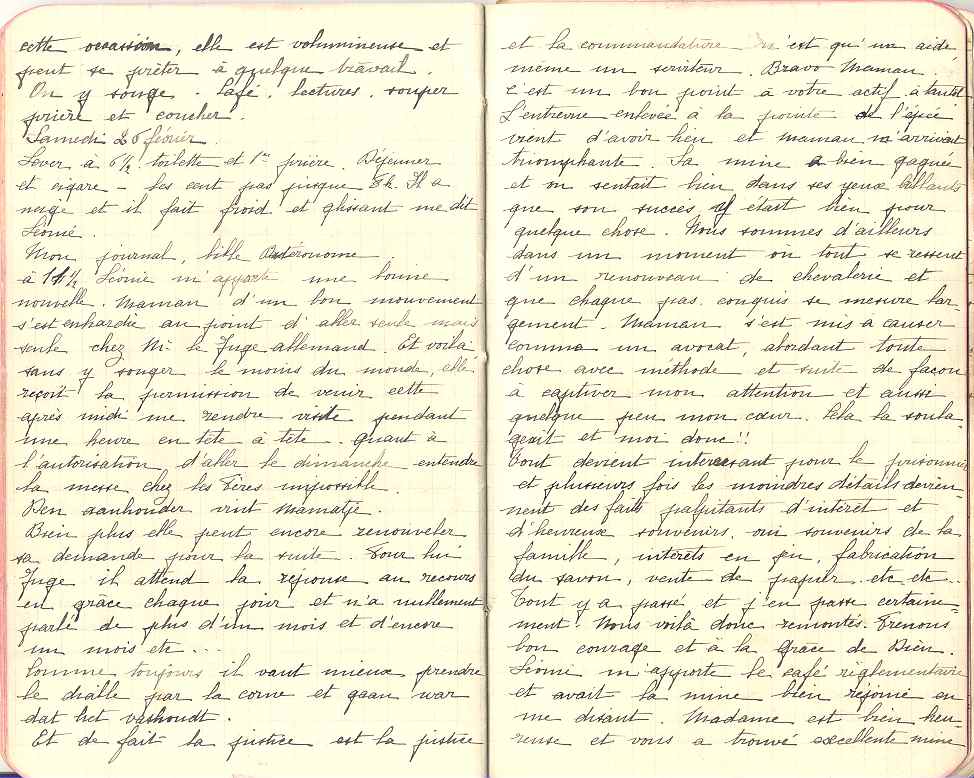 cette occassion, elle est volumineuse et
peut se prêter à quelque travail.
On y songe. Café. lectures. souper
prière et coucher.
Samedi 26 février.
Lever à 6½ toilette et 1re prière. Déjeuner
et cigare – les cent pas jusque 8h. Il a
neigé et il fait froid et glissant me dit
Léonie.
Mon journal, bible
à 11½ Léonie m'apporte une bonne
nouvelle. Maman d'un bon mouvement
s'est enhardie au point d'aller seule mais
seule chez Mr le Juge allemand. Et voilà
sans y songer le moins du monde, elle
reçoit la permission de venir cette
après midi me rendre visite pendant
une heure en tête à tête. quant à
l'autorisation d'aller le dimanche entendre
la messe chez les Pères impossible.
Den aanhouder vint mamatje.
Bien plus elle peut encore renouveler
sa demande pour la suite. Pour lui
Juge il attend la réponse au recours
en grâce chaque jour et n'a nullement
parlé de plus d'un mois et d'encore
un mois etc ...
Comme toujours il vaut mieux prendre
le diable par la corne et gaan waar
dat het vashoudt.
Et de fait la justice est la justice
et la commandature n'est qu'un aide
même un serviteur. Bravo Maman
c'est un bon point à votre actif à tantôt
L'entrevue enlevée à la pointe de l'épée
vient d'avoir lieu et maman m'arrivait
triomphante. Sa mine a bien gagnée
et on sentait bien dans ses yeux brillants
que son succès y était bien pour
quelque chose. Nous sommes d'ailleurs
dans un moment où tout se ressent
d'un renouveau de chevalerie et
que chaque pas conquis se mesure lar-
gement. Maman s'est mis à causer
comme un avocat, abordant toute
chose avec méthode et suite de façon
à captiver mon attention et aussi
quelque peu mon cœur. Cela la soula-
geait et moi donc!!
Tout devient interessant pour le prisonnier
et plusieurs fois les moindres détails devien-
nent des faits palpitants d'intérêt et
d'heureux souvenirs. oui souvenirs de la
famille, intérêts en jeu, fabrication
du savon, vente de papier. etc etc..
Tout y a passé et j'en passe certaine-
ment. Nous voilà donc remontés. Prenons
bon courage et à la grâce de Dieu.
Léonie m'apporte le café réglementaire
et avait la mine bien réjouie en
me disant. Madame est bien heu-
reuse et vous a trouvé excellente mine